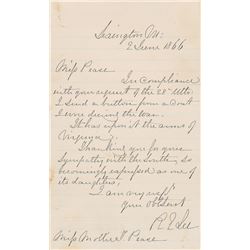 Lexington Va:
2 June 1866
Miss Pease
In compliance
with your request of the 28th Ulto:
I send a button from a coat
I wore during the war.
It has upon it the arms of
Virginia
Thanking you for your
Sympathy with the South, so
becomingly expressed as one of
its daughters,
I am very resp'y
Your obt servt
R E Lee
Miss Mother Pease